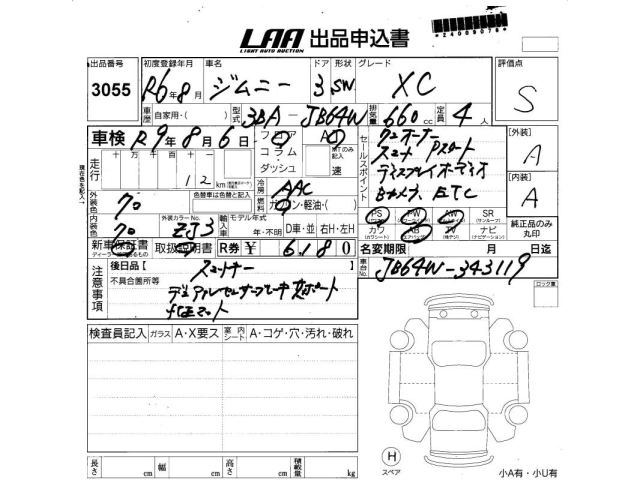 LAA 出品申込書
LIGHT AUTO AUCTION
*24009076*
出品番号 初度登録年月 車名 ドア 形状 グレード 評価点
3055 R6年8月 ジムニー 3 SW XC S
車歴 自家用・( ) 型式 3BA-JB64W 排気量 660cc 定員 4人
車検 R9年8月6日 フロア コラム ダッシュ MTのみ記入 速
セールスポイント
スマート Pスタート
ディスプレイオーディオ
Bカメラ、ETC
[外装] A
[内装] A
現在色を記入
走行 十万 千 百 十 12 km
冷房 AAC
燃料 ガソリン・軽油・( )
外装色 クロ 色替車は色替と記入
内装色 クロ 外装カラーNo. ZJ3 輸入車 モデル年式 年・不明 D車・並 右H・左H
PS PW AW SR
(サンルーフ)
カワ AB TV ナビ
(カワシート) (エアバッグ) (ナビゲーション)
純正品のみ丸印
新車保証書 取扱説明書 R券 ¥ 6,180
名変期限 月 日迄
車台No. JB64W-343119
注意事項
後日品【
不具合箇所等
デュアルセンサーブレーキサポート
ロック要
検査員記入 ガラス A・X要ス 室内シート A・コゲ・穴・汚れ・破れ
長さ cm 幅 cm 高さ cm 積載量 kg
H
スペア
小A有・小U有